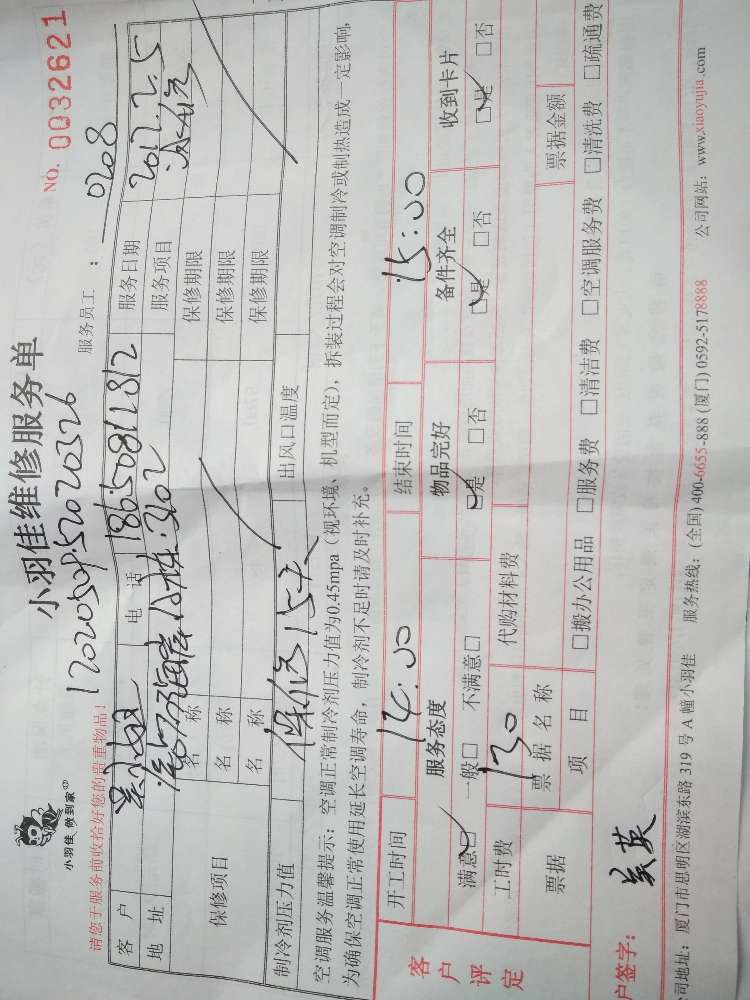 小羽佳 做到家
小羽佳维修服务单
NO. 0032621
1202050952020326
服务员工 ： 0208
请您于服务前收拾好您的贵重物品！
客 户 电 话 18650811812 服务日期 2017.2.5
地 址 302 服务项目
保修项目
名 称 保修期限
名 称 保修期限
名 称 保修期限
制冷剂压力值 保修15天 出风口温度
空调服务温馨提示：空调正常制冷剂压力值为0.45mpa（视环境、机型而定），拆装过程会对空调制冷或制热造成一定影响，
为确保空调正常使用延长空调寿命，制冷剂不足时请及时补充。
客户评定
开工时间 14:00 结束时间 15:00
服务态度 物品完好 备件齐全 收到卡片
满意□ 一般□ 不满意□ □是 □否 □是 □否 □是 □否
工时费 130 代购材料费
票据 票据名称 票据金额
项 目 □搬办公用品 □服务费 □清洁费 □空调服务费 □清洗费 □疏通费
户签字：
司地址：厦门市思明区湖滨东路 319 号 A 幢小羽佳 服务热线：(全国) 400-6655-888 (厦门) 0592-5178888 公司网站：www.xiaoyujia.com